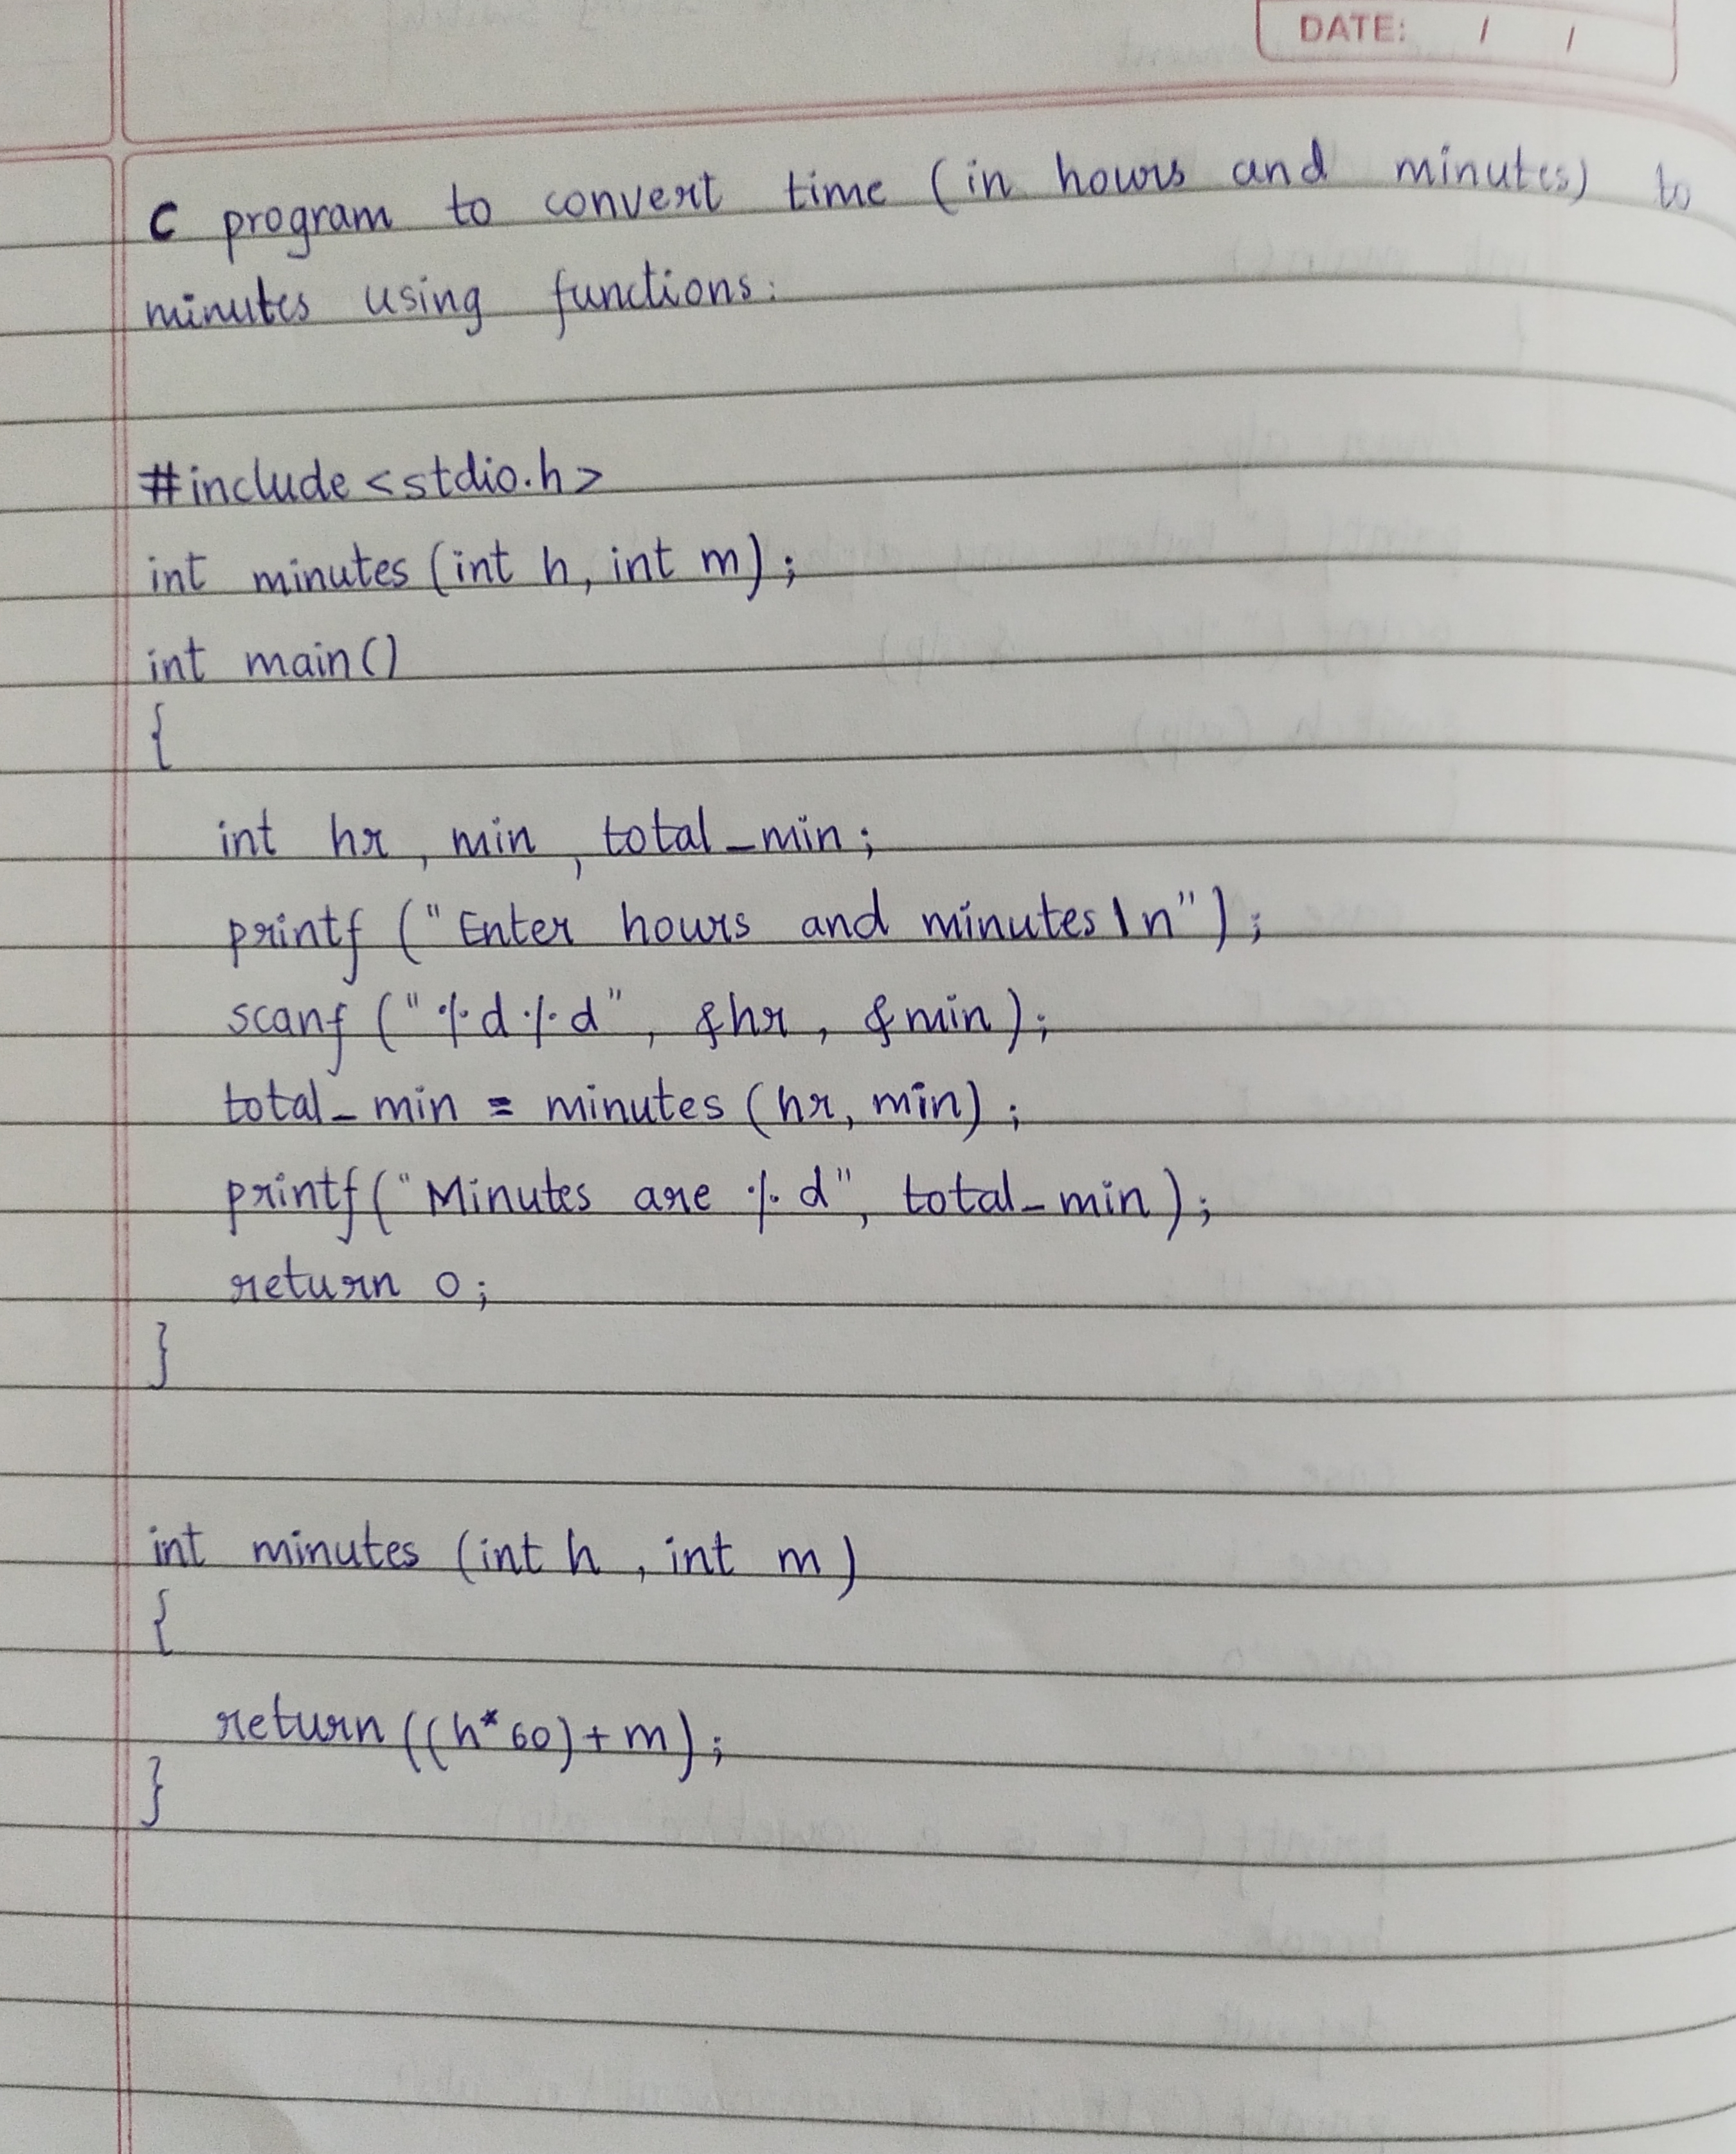 DATE: / /
C program to convert time (in hours and minutes) to
minutes using functions.
#include <stdio.h>
int minutes (int h, int m);
int main()
{
int hr, min, total_min;
printf ("Enter hours and minutes \n");
scanf ("%d%d", &hr, &min);
total_min = minutes (hr, min);
printf("Minutes are %d", total_min);
return 0;
}
int minutes (int h, int m)
{
return ((h*60)+m);
}